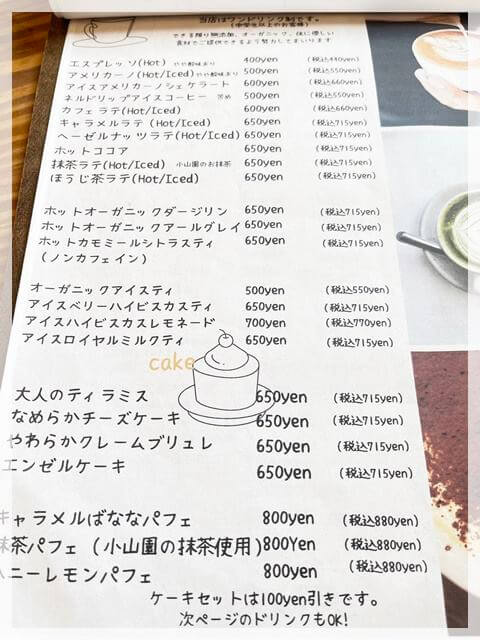 当店はワンドリンク制です。
(中学生以上のお客様)
できる限り無添加、オーガニック、体に優しい
食材でご提供できるよう努力してまいります
エスプレッソ(Hot) やや酸味あり 400yen (税込440yen)
アメリカーノ(Hot/Iced)やや酸味あり 500yen (税込550yen)
アイスアメリカーノシェケラート 600yen (税込660yen)
ネルドリップアイスコーヒー 苦め 500yen (税込550yen)
カフェラテ(Hot/Iced) 600yen (税込660yen)
キャラメルラテ(Hot/Iced) 650yen (税込715yen)
ヘーゼルナッツラテ(Hot/Iced) 650yen (税込715yen)
ホットココア 650yen (税込715yen)
抹茶ラテ(Hot/Iced) 小山園のお抹茶 650yen (税込715yen)
ほうじ茶ラテ(Hot/Iced) 650yen (税込715yen)
ホットオーガニックダージリン 650yen (税込715yen)
ホットオーガニックアールグレイ 650yen (税込715yen)
ホットカモミールシトラスティ 650yen (税込715yen)
(ノンカフェイン)
オーガニックアイスティ 500yen (税込550yen)
アイスベリーハイビスカスティ 650yen (税込715yen)
アイスハイビスカスレモネード 700yen (税込770yen)
アイスロイヤルミルクティ 650yen (税込715yen)
cake
大人のティラミス 650yen (税込715yen)
なめらかチーズケーキ 650yen (税込715yen)
やわらかクレームブリュレ 650yen (税込715yen)
エンゼルケーキ 650yen (税込715yen)
キャラメルばななパフェ 800yen (税込880yen)
抹茶パフェ(小山園の抹茶使用) 800Yen (税込880yen)
ハニーレモンパフェ 800yen (税込880yen)
ケーキセットは100yen引きです。
次ページのドリンクもOK!